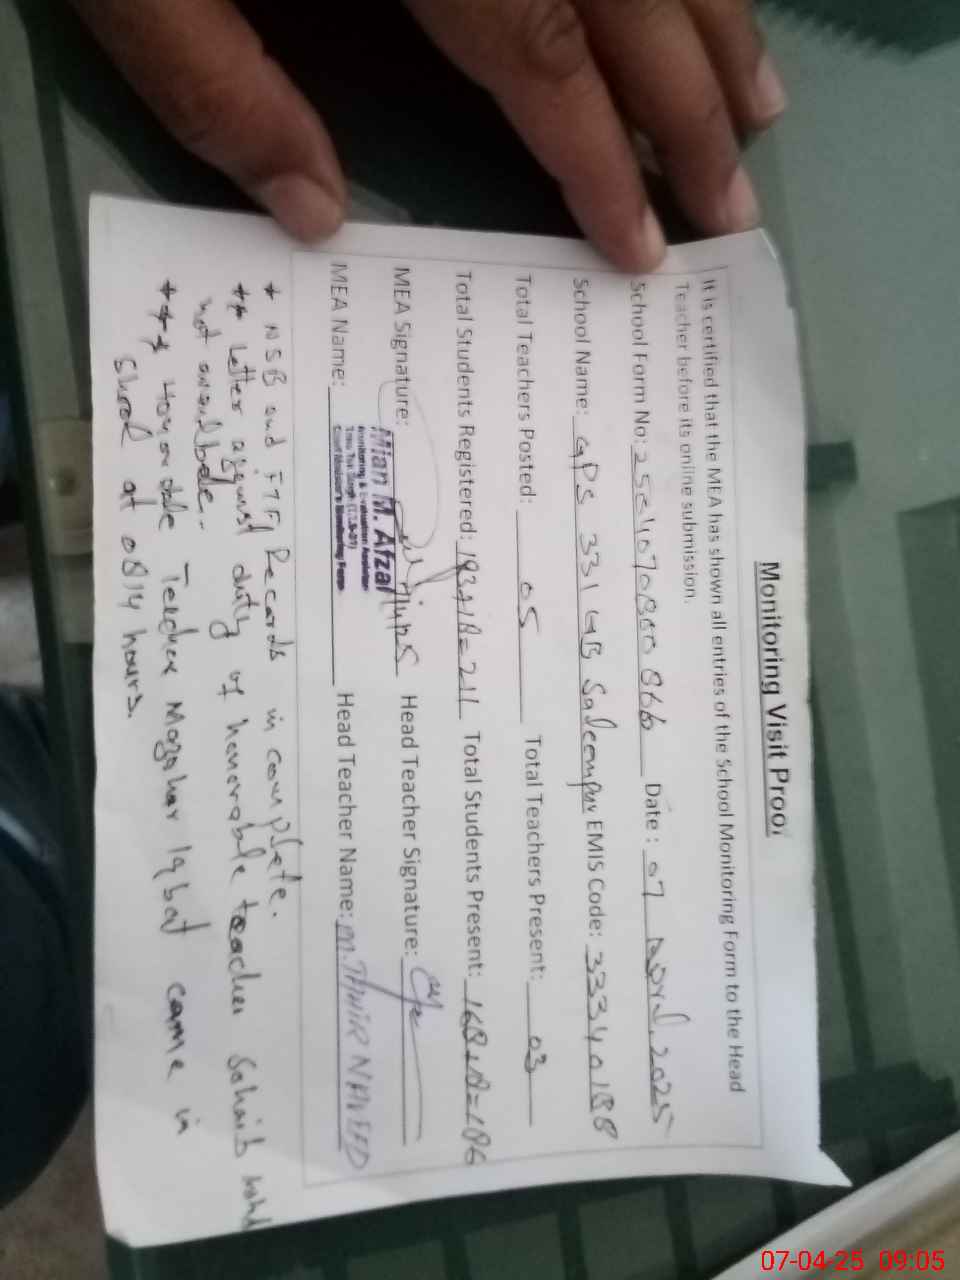 Monitoring Visit Proof
It is certified that the MEA has shown all entries of the School Monitoring Form to the Head
Teacher before its online submission.
School Form No: Date: 07 April, 2025
School Name: GPS 331 GB Saleempur EMIS Code: 33340188
Total Teachers Posted: 05 Total Teachers Present: 03
Total Students Registered: 193+18=211 Total Students Present: 168+18=186
MEA Signature: Head Teacher Signature:
Mian M. Afzal
Monitoring & Evaluation Assistant
MEA Name: Head Teacher Name: M. NAVEED
* NSB and FTF Records in complete.
** Letter against duty of honorable teacher Sahib
not availbale.
*** Honorable Teacher Mazahar Iqbal came in
School at 0814 hours.
07-04-25 09:05